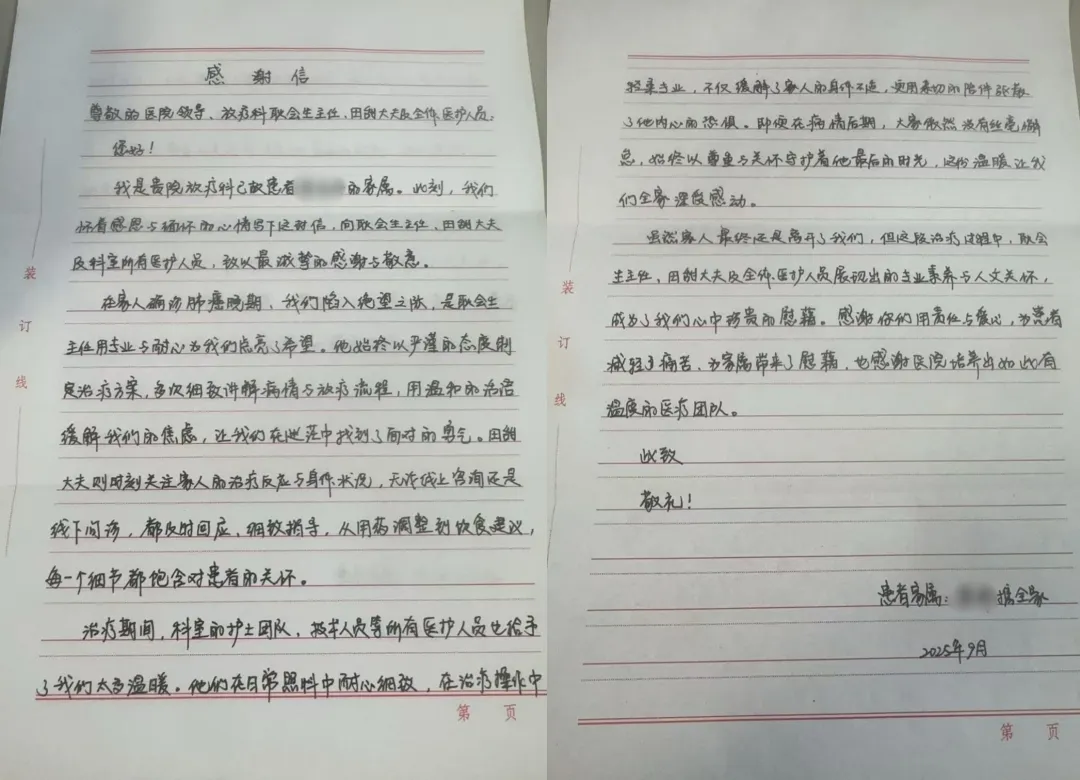 感谢信
尊敬的医院领导、放疗科耿会生主任、田甜大夫及全体医护人员:
您好!
我是贵院放疗科已故患者 的家属。此刻,我们
怀着感恩与缅怀的心情写下这封信,向耿会生主任、田甜大夫
及科室所有医护人员,致以最诚挚的感谢与敬意。
在家人确诊肺癌晚期,我们陷入绝望之际,是耿会生
主任用专业与耐心为我们点亮了希望。他始终以严谨的态度制
定治疗方案,多次细致讲解病情与放疗流程,用温和的话语
缓解我们的焦虑,让我们在迷茫中找到了面对的勇气。田甜
大夫则时刻关注家人的治疗反应与身体状况,无论线上咨询还是
线下问诊,都及时回应、细致指导,从用药调整到饮食建议,
每一个细节都饱含对患者的关怀。
治疗期间,科室的护士团队、技术人员等所有医护人员也给予
了我们太多温暖。他们在日常照料中耐心细致,在治疗操作中
装
订
线
第 页
轻柔专业,不仅缓解了家人的身体不适,更用亲切的陪伴驱散
了他内心的恐惧。即便在病情后期,大家依然没有丝毫懈
怠,始终以尊重与关怀守护着他最后的时光,这份温暖让我
们全家深受感动。
虽然家人最终还是离开了我们,但这段治疗过程中,耿会
生主任、田甜大夫及全体医护人员展现出的专业素养与人文关怀,
成为了我们心中珍贵的慰藉。感谢你们用责任与爱心,为患者
减轻了痛苦,为家属带来了慰藉,也感谢医院培养出如此有
温度的医疗团队。
此致
敬礼!
患者家属: 携全家
2025年9月
装
订
线
第 页